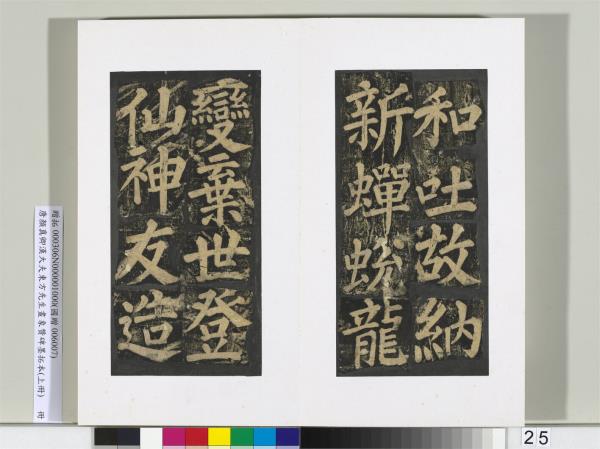 和吐故納
新蟬蛻龍
變棄世登
仙神友造
贈拓 000306N000001000(國贈 006007)
唐顏真卿漢大夫東方先生畫象贊碑墨拓本(上冊) 冊
25